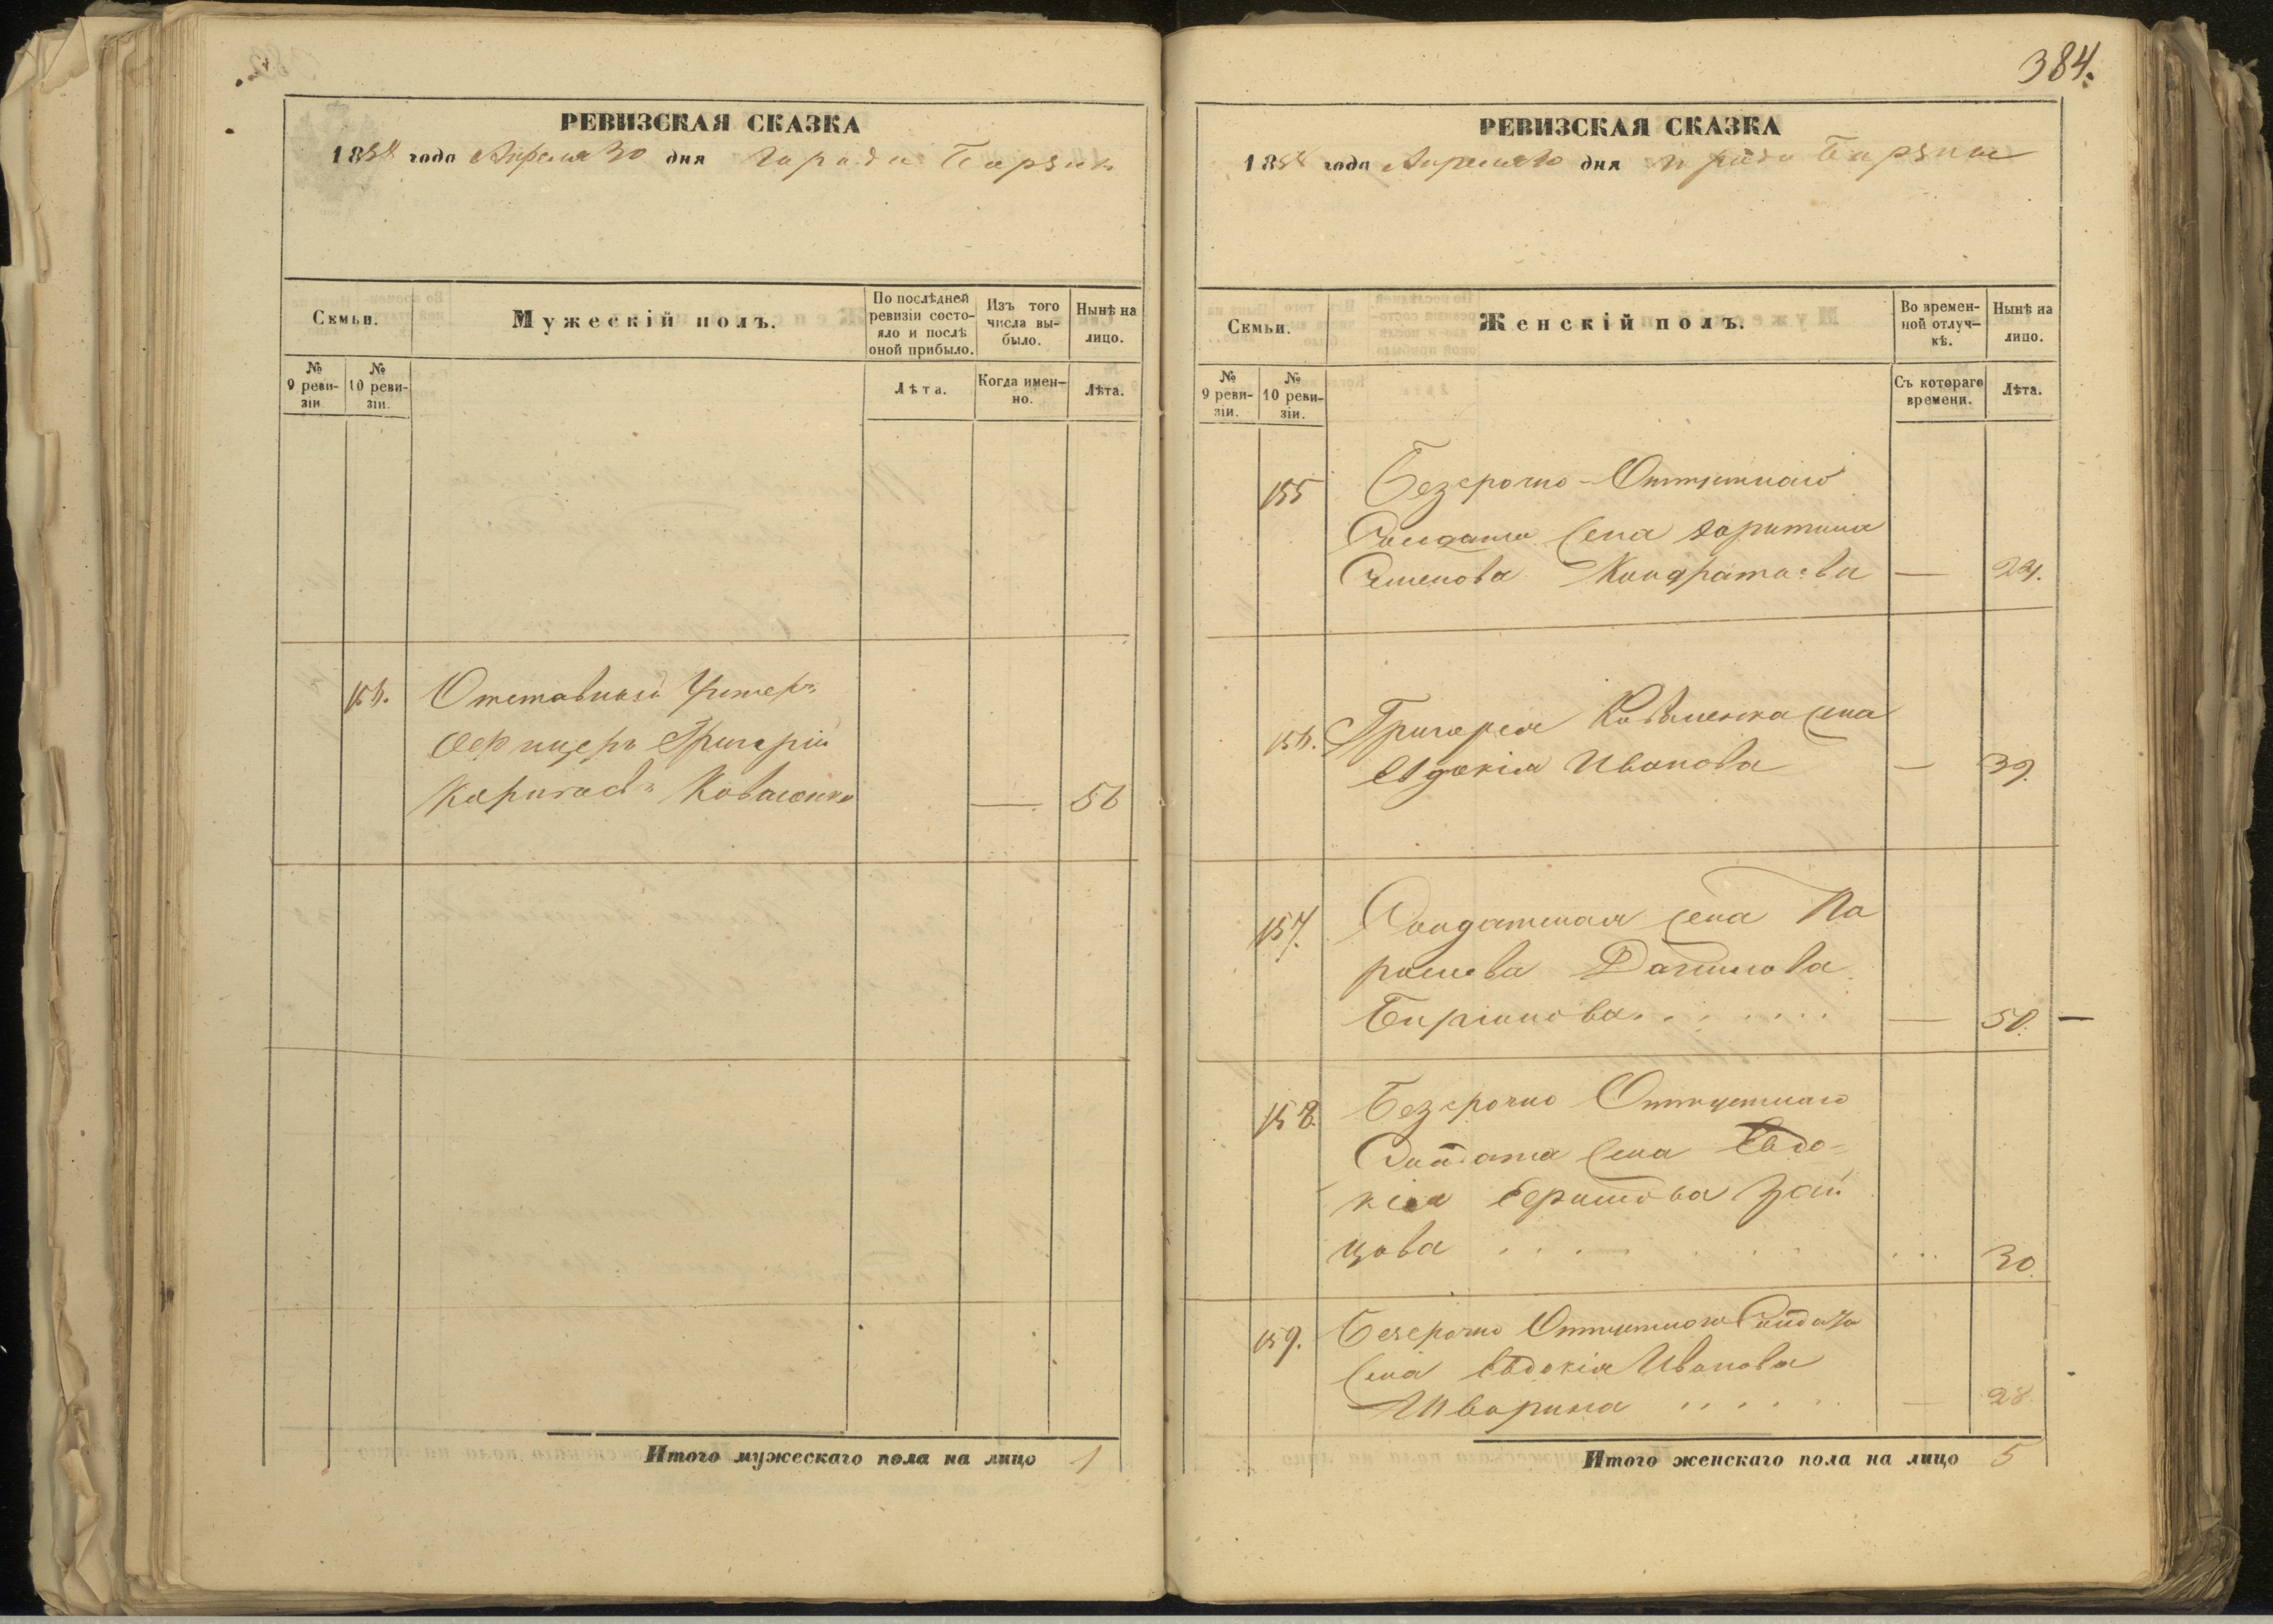 384.
РЕВИЗСКАЯ СКАЗКА
1858 года Апреля 30 дня города Борзни
Семьи.
Мужескій полъ.
По послѣдней ревизіи состояло и послѣ оной прибыло.
Изъ того числа выбыло.
Нынѣ на лицо.
№ 9 ревизіи
№ 10 ревизіи.
Лѣта.
Когда именно.
Лѣта.
156. Отставный Унтеръ
Офицеръ Григорій
Коваленко — 56
Итого мужескаго пола на лицо 1
РЕВИЗСКАЯ СКАЗКА
1858 года Апреля 30 дня города Борзны
Семьи.
Женскій полъ.
Во временной отлучкѣ.
Нынѣ на лицо.
№ 9 ревизіи.
№ 10 ревизіи.
Съ котораго времени.
Лѣта.
155 Безсрочно-Отпускнаго
Солдата жена
Семенова Кондратьева — 24.
156. Григорія Коваленка жена
Евдокія Иванова — 39.
157. Солдатская жена Па
раскева Данилова
— 50. —
158. Безсрочно Отпускнаго
Солдата жена Евдо-
кія Зай
цова 30
159. Безсрочно Отпускного Солдата
жена Евдокія Иванова
— 28.
Итого женскаго пола на лицо 5